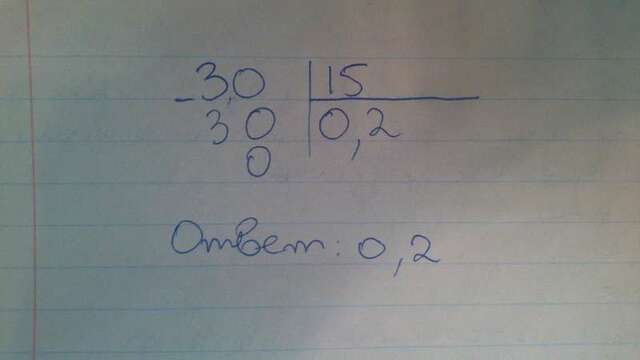 - 3,0 | 15
3 0 | 0,2
0
Ответ: 0,2